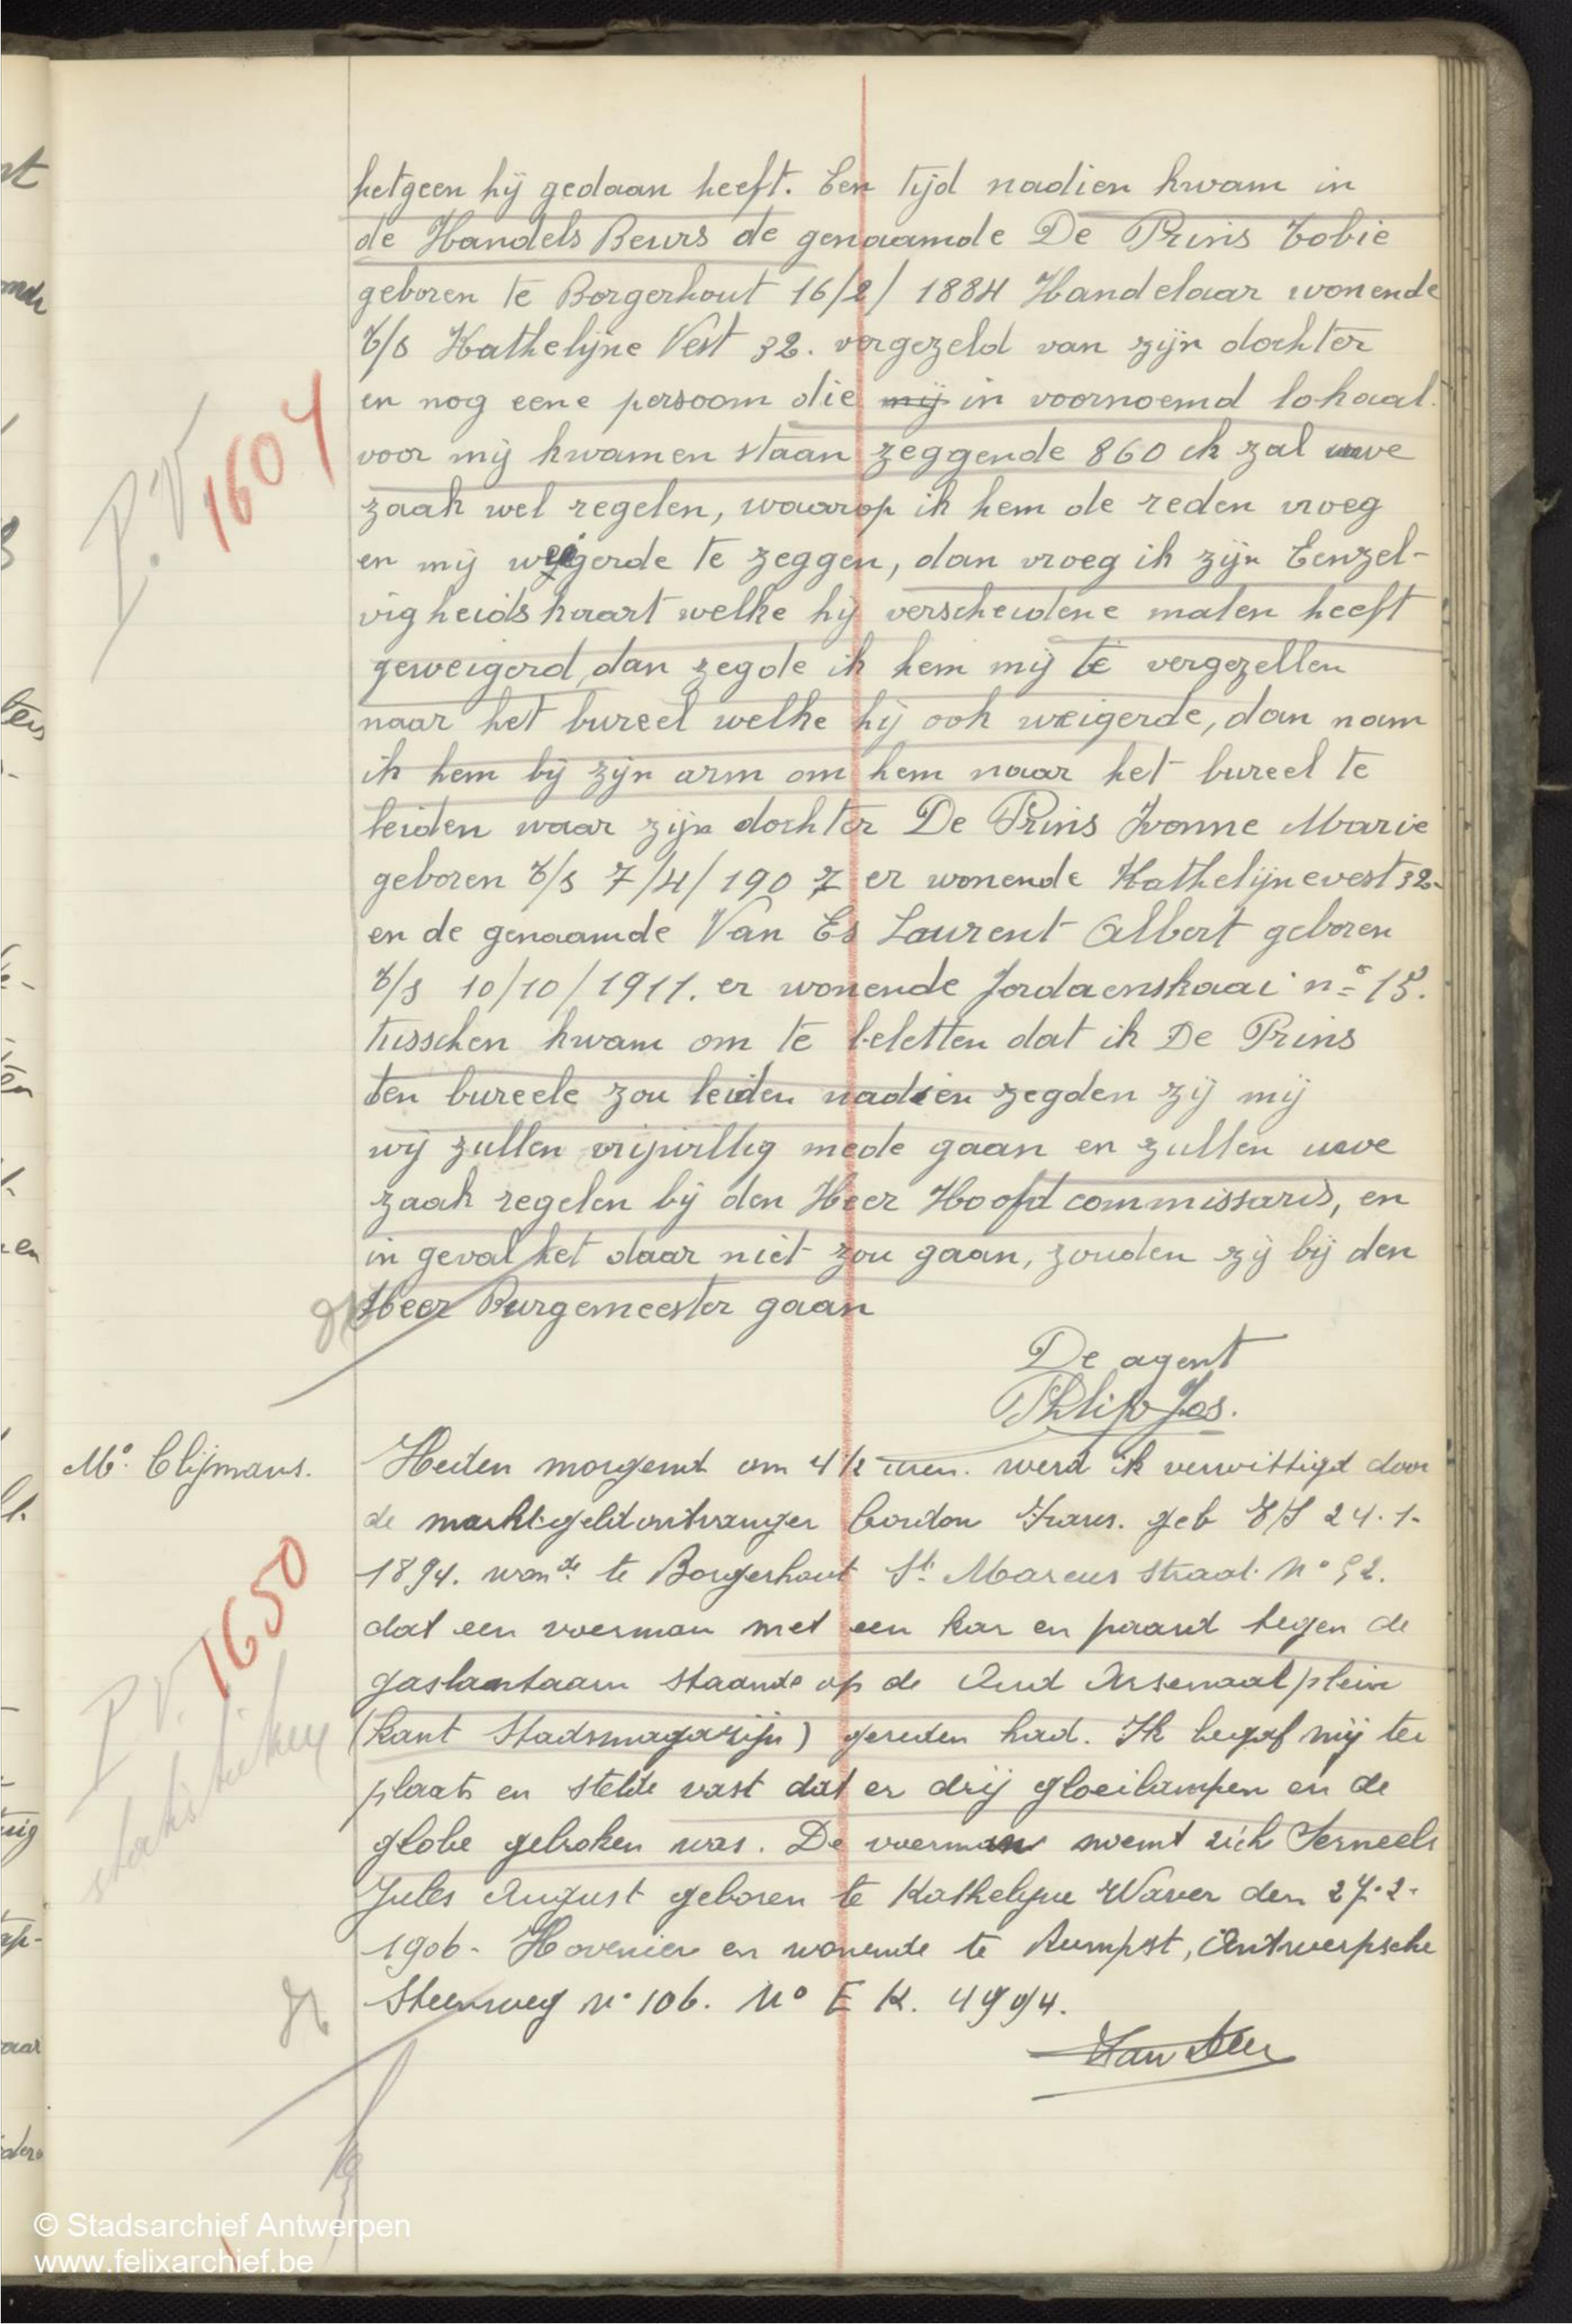 hetgeen hij gedaan heeft. Een tijd nadien kwam in
de Handels Beurs de genaamde De Prins Tobie
geboren te Borgerhout 16/2/1884 Handelaar wonende
t/s Kathelijne Vest 32. vergezeld van zijn dochter
en nog eene persoom die mij in voornoemd lokaal.
voor mij kwamen staan zeggende 860 ik zal uwe
zaak wel regelen, waarop ik hem de reden vroeg
en mij weigerde te zeggen, dan vroeg ik zijn Eenzel-
vigheidskaart welke hij verscheidene malen heeft
geweigerd, dan zegde ik hem mij te vergezellen
naar het bureel welke hij ook weigerde, dan nam
ik hem bij zijn arm om hem naar het bureel te
leiden waar zijn dochter De Prins Ivonne Marie
geboren t/s 7/4/1907 er wonende Kathelijnevest 32.
en de genaamde Van Es Laurent Albert geboren
t/s 10/10/1911. er wonende Jordaenskaai n° 15.
tusschen kwam om te beletten dat ik De Prins
ten bureele zou leiden nadien zegden zij mij
wij zullen vrijwillig mede gaan en zullen uwe
zaak regelen bij den Heer Hoofdcommissaris, en
in geval het daar niet zou gaan, zouden zij bij den
Heer Burgemeester gaan
De agent
Philip Jos.
P.V 1604
M° Clijmans.
Heden morgend om 4 1/2 uren. werd ik verwittigd door
de marktgeldontvanger Cordon Frans. geb T/S 24.1.
1894. won^de te Borgerhout St Marcus straat. N° 52.
dat een voerman met een kar en paard tegen de
gaslantaarn staande op de Oud Arsenaalplein
(kant Stadsmagazijn) gereden had. Ik begaf mij ter
plaats en stelde vast dat er drij gloeilampen en de
globe gebroken was. De voerman noemt zich Serneels
Jules August geboren te Kathelyne Waver den 27.2.
1906. Hovenier en wonende te Rumpst, Antwerpsche
Steenweg N° 106. N° E K. 4994.
P.V. 1650
statistieken
© Stadsarchief Antwerpen
www.felixarchief.be